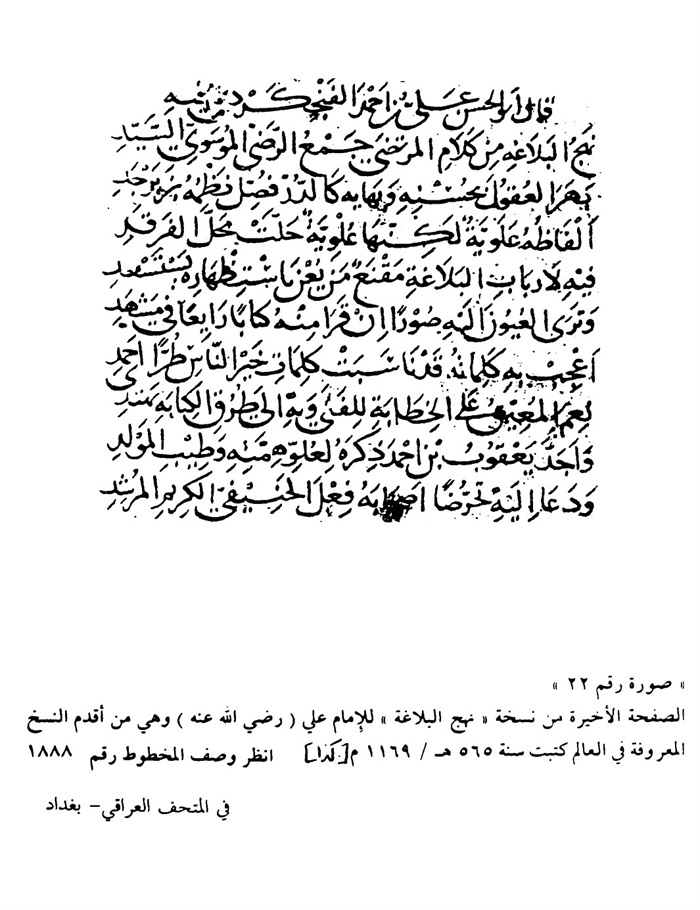 قال ابو الحسن علي بن احمد الفنجكردي
نهج البلاغه من كلام المرتضى جمع الرضي الموسوي السيد
بهر العقول بحسنه وبهايه كالدر فصل نظمه بزبرجد
الفاظه علوية لكنها علوية حلت محل الفرقد
فيه لارباب البلاغة مقنع من يعن باستظهاره يستسعد
وترى العيون اليه صورا ان قرا منه كتابا رايعا في مشهد
اعجب به كلماته قد ناسبت كلمات خير الناس طرا احمد
نعم المعين على الخطابة للفتى وبه الى طرق الكتابه
واجد يعقوب بن احمد ذكره لعلو همته وطيب المولد
ودعا اليه محرضا اصحابه فعل الحنيفي الكريم المرشد
« صورة رقم ٢٢ »
الصفحة الأخيرة من نسخة « نهج البلاغة » للإمام علي ( رضي الله عنه ) وهي من أقدم النسخ
المعروفة في العالم كتبت سنة ٥٦٥ هـ / ١١٦٩ م [كذا] انظر وصف المخطوط رقم ١٨٨٨
في المتحف العراقي - بغداد